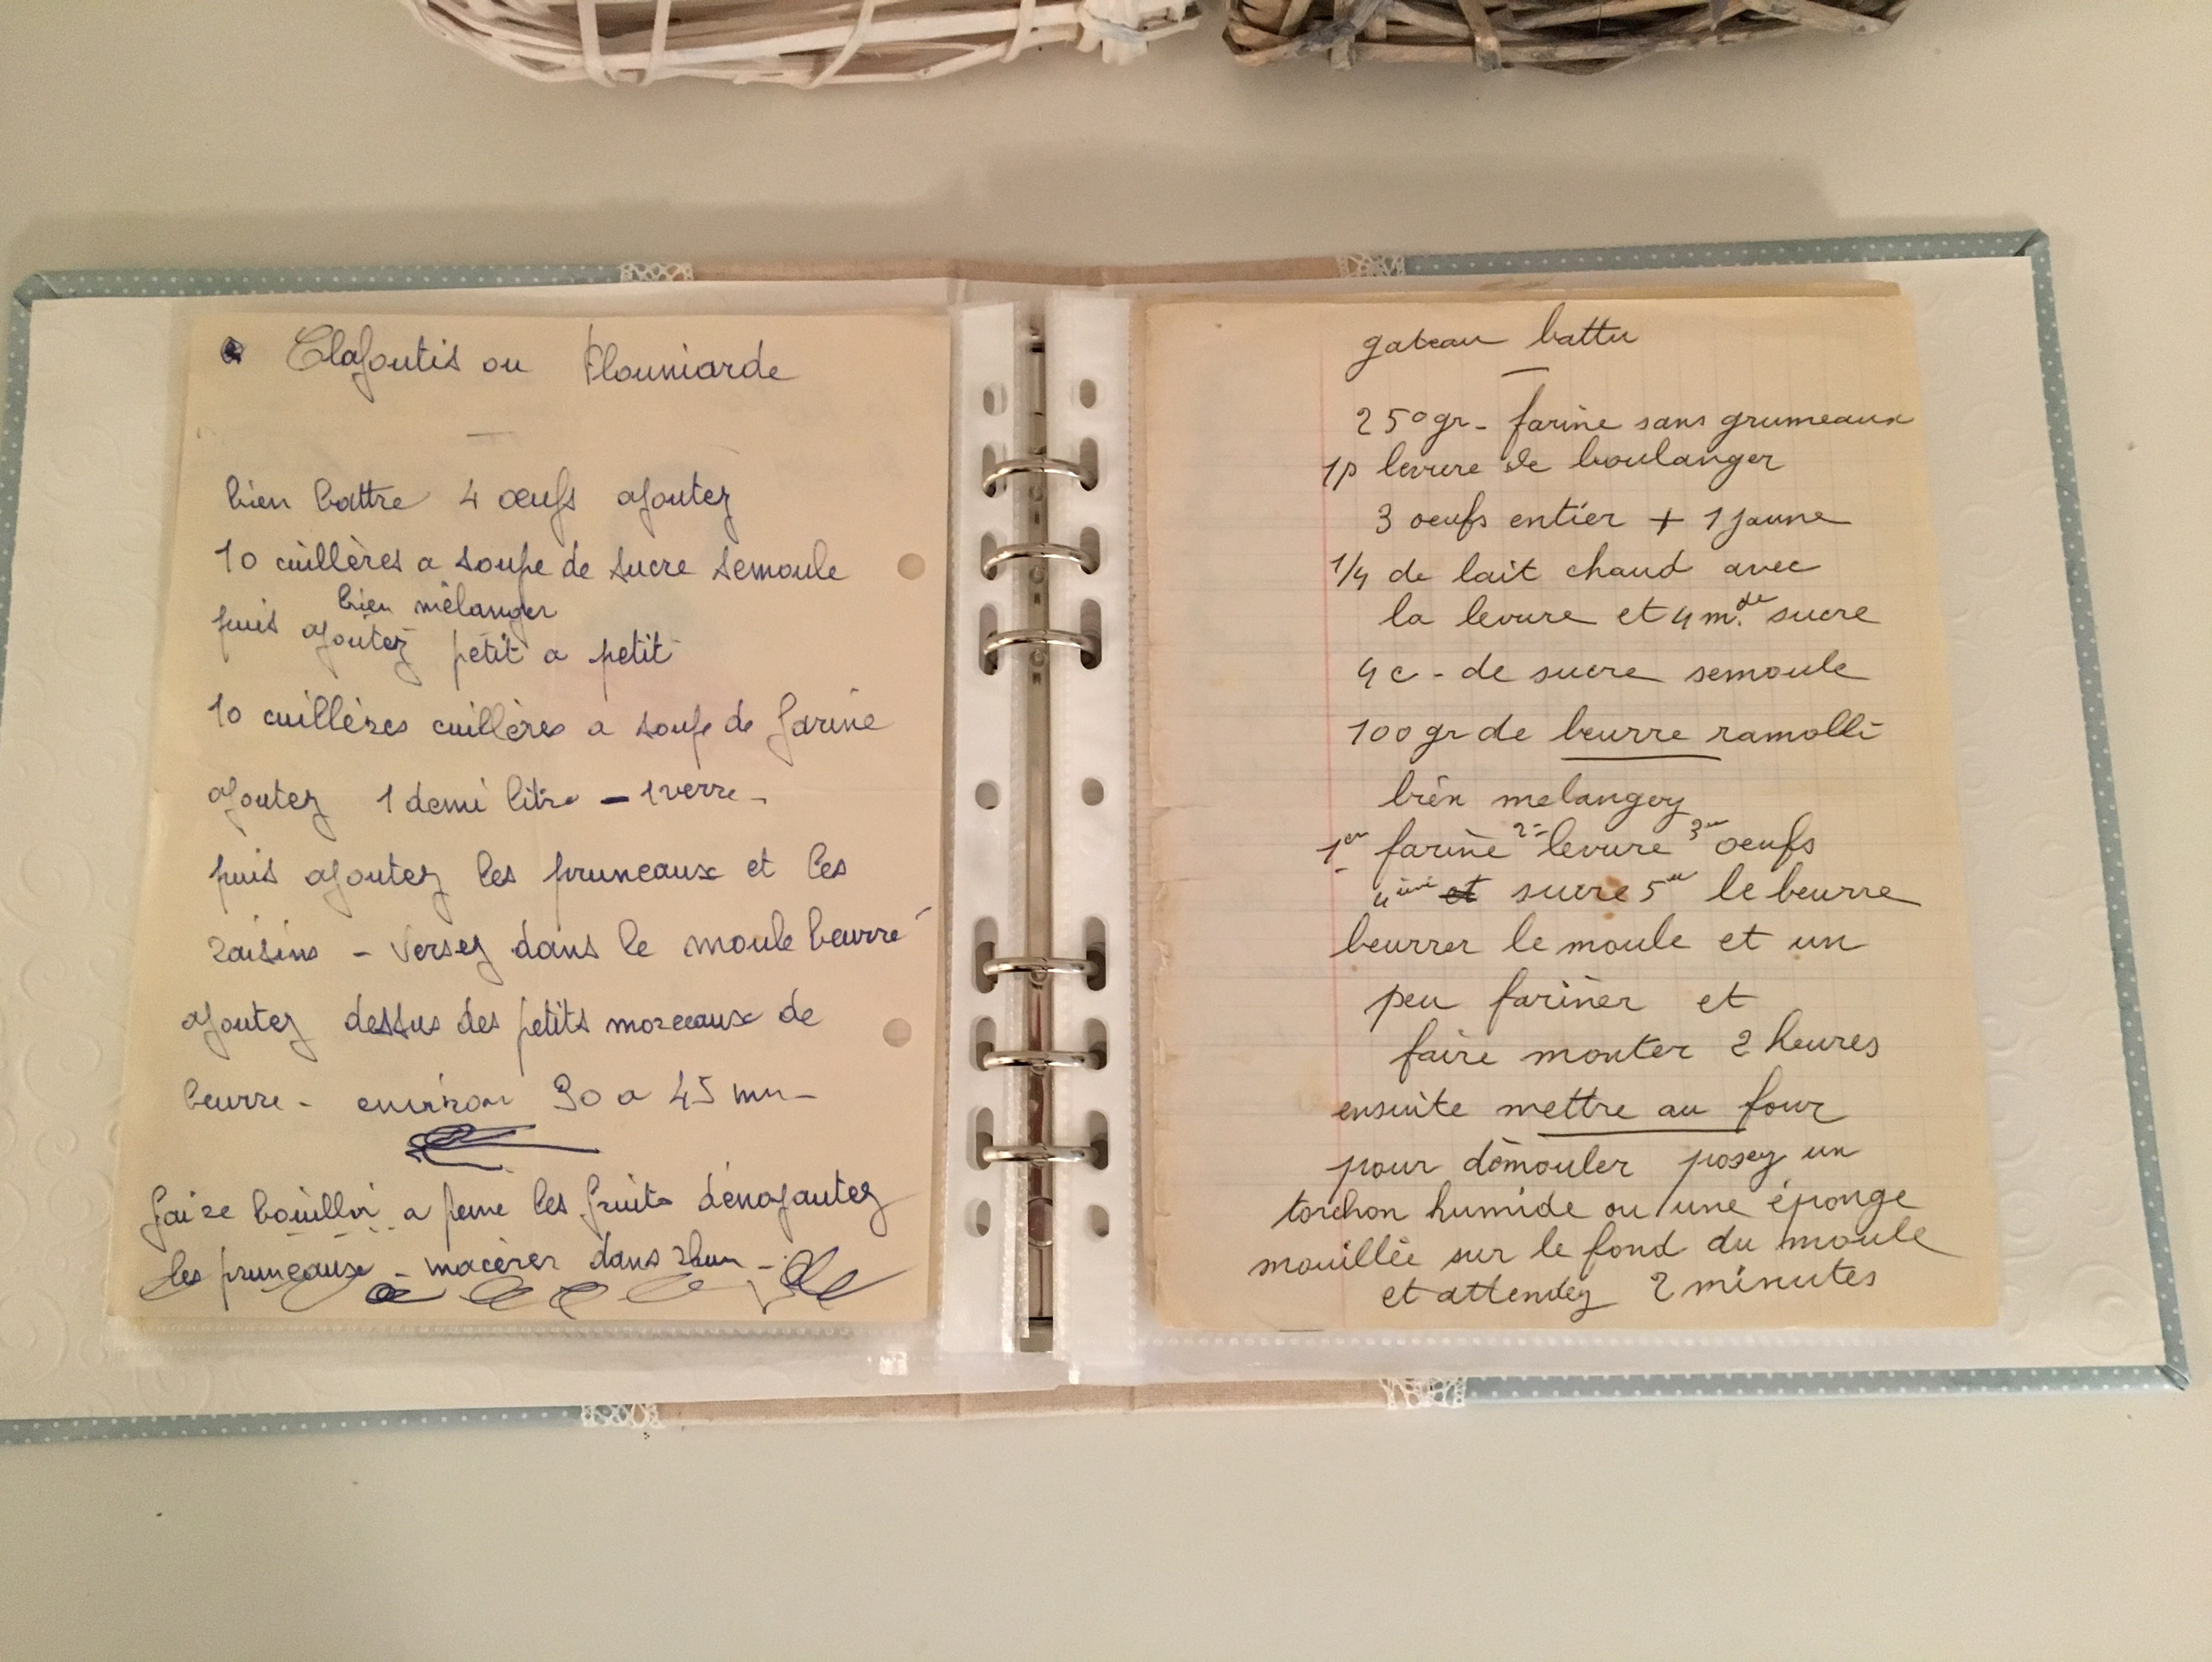 Clafoutis ou Flouniarde
bien battre 4 œufs ajoutez
10 cuillères a soupe de sucre semoule
bien mélanger
puis ajoutez petit a petit
10 cuillères cuillères a soupe de farine
ajoutez 1 demi litre - 1 verre -
puis ajoutez les pruneaux et les
raisins - versez dans le moule beurré
ajoutez dessus des petits morceaux de
beurre - environ 30 a 45 mn -
faire bouillir a peine les fruits dénoyautez
les pruneaux - macérer dans rhum -
gateau battu
250 gr - farine sans grumeaux
1p levure de boulanger
3 oeufs entier + 1 jaune
1/4 de lait chaud avec
la levure et 4 m. de sucre
4 c - de sucre semoule
100 gr de beurre ramolli
bien melangez
1er farine 2= levure 3me oeufs
4ème et sucre 5me le beurre
beurrer le moule et un
peu fariner et
faire monter 2 heures
ensuite mettre au four
pour démouler posez un
torchon humide ou une éponge
mouillée sur le fond du moule
et attendez 2 minutes